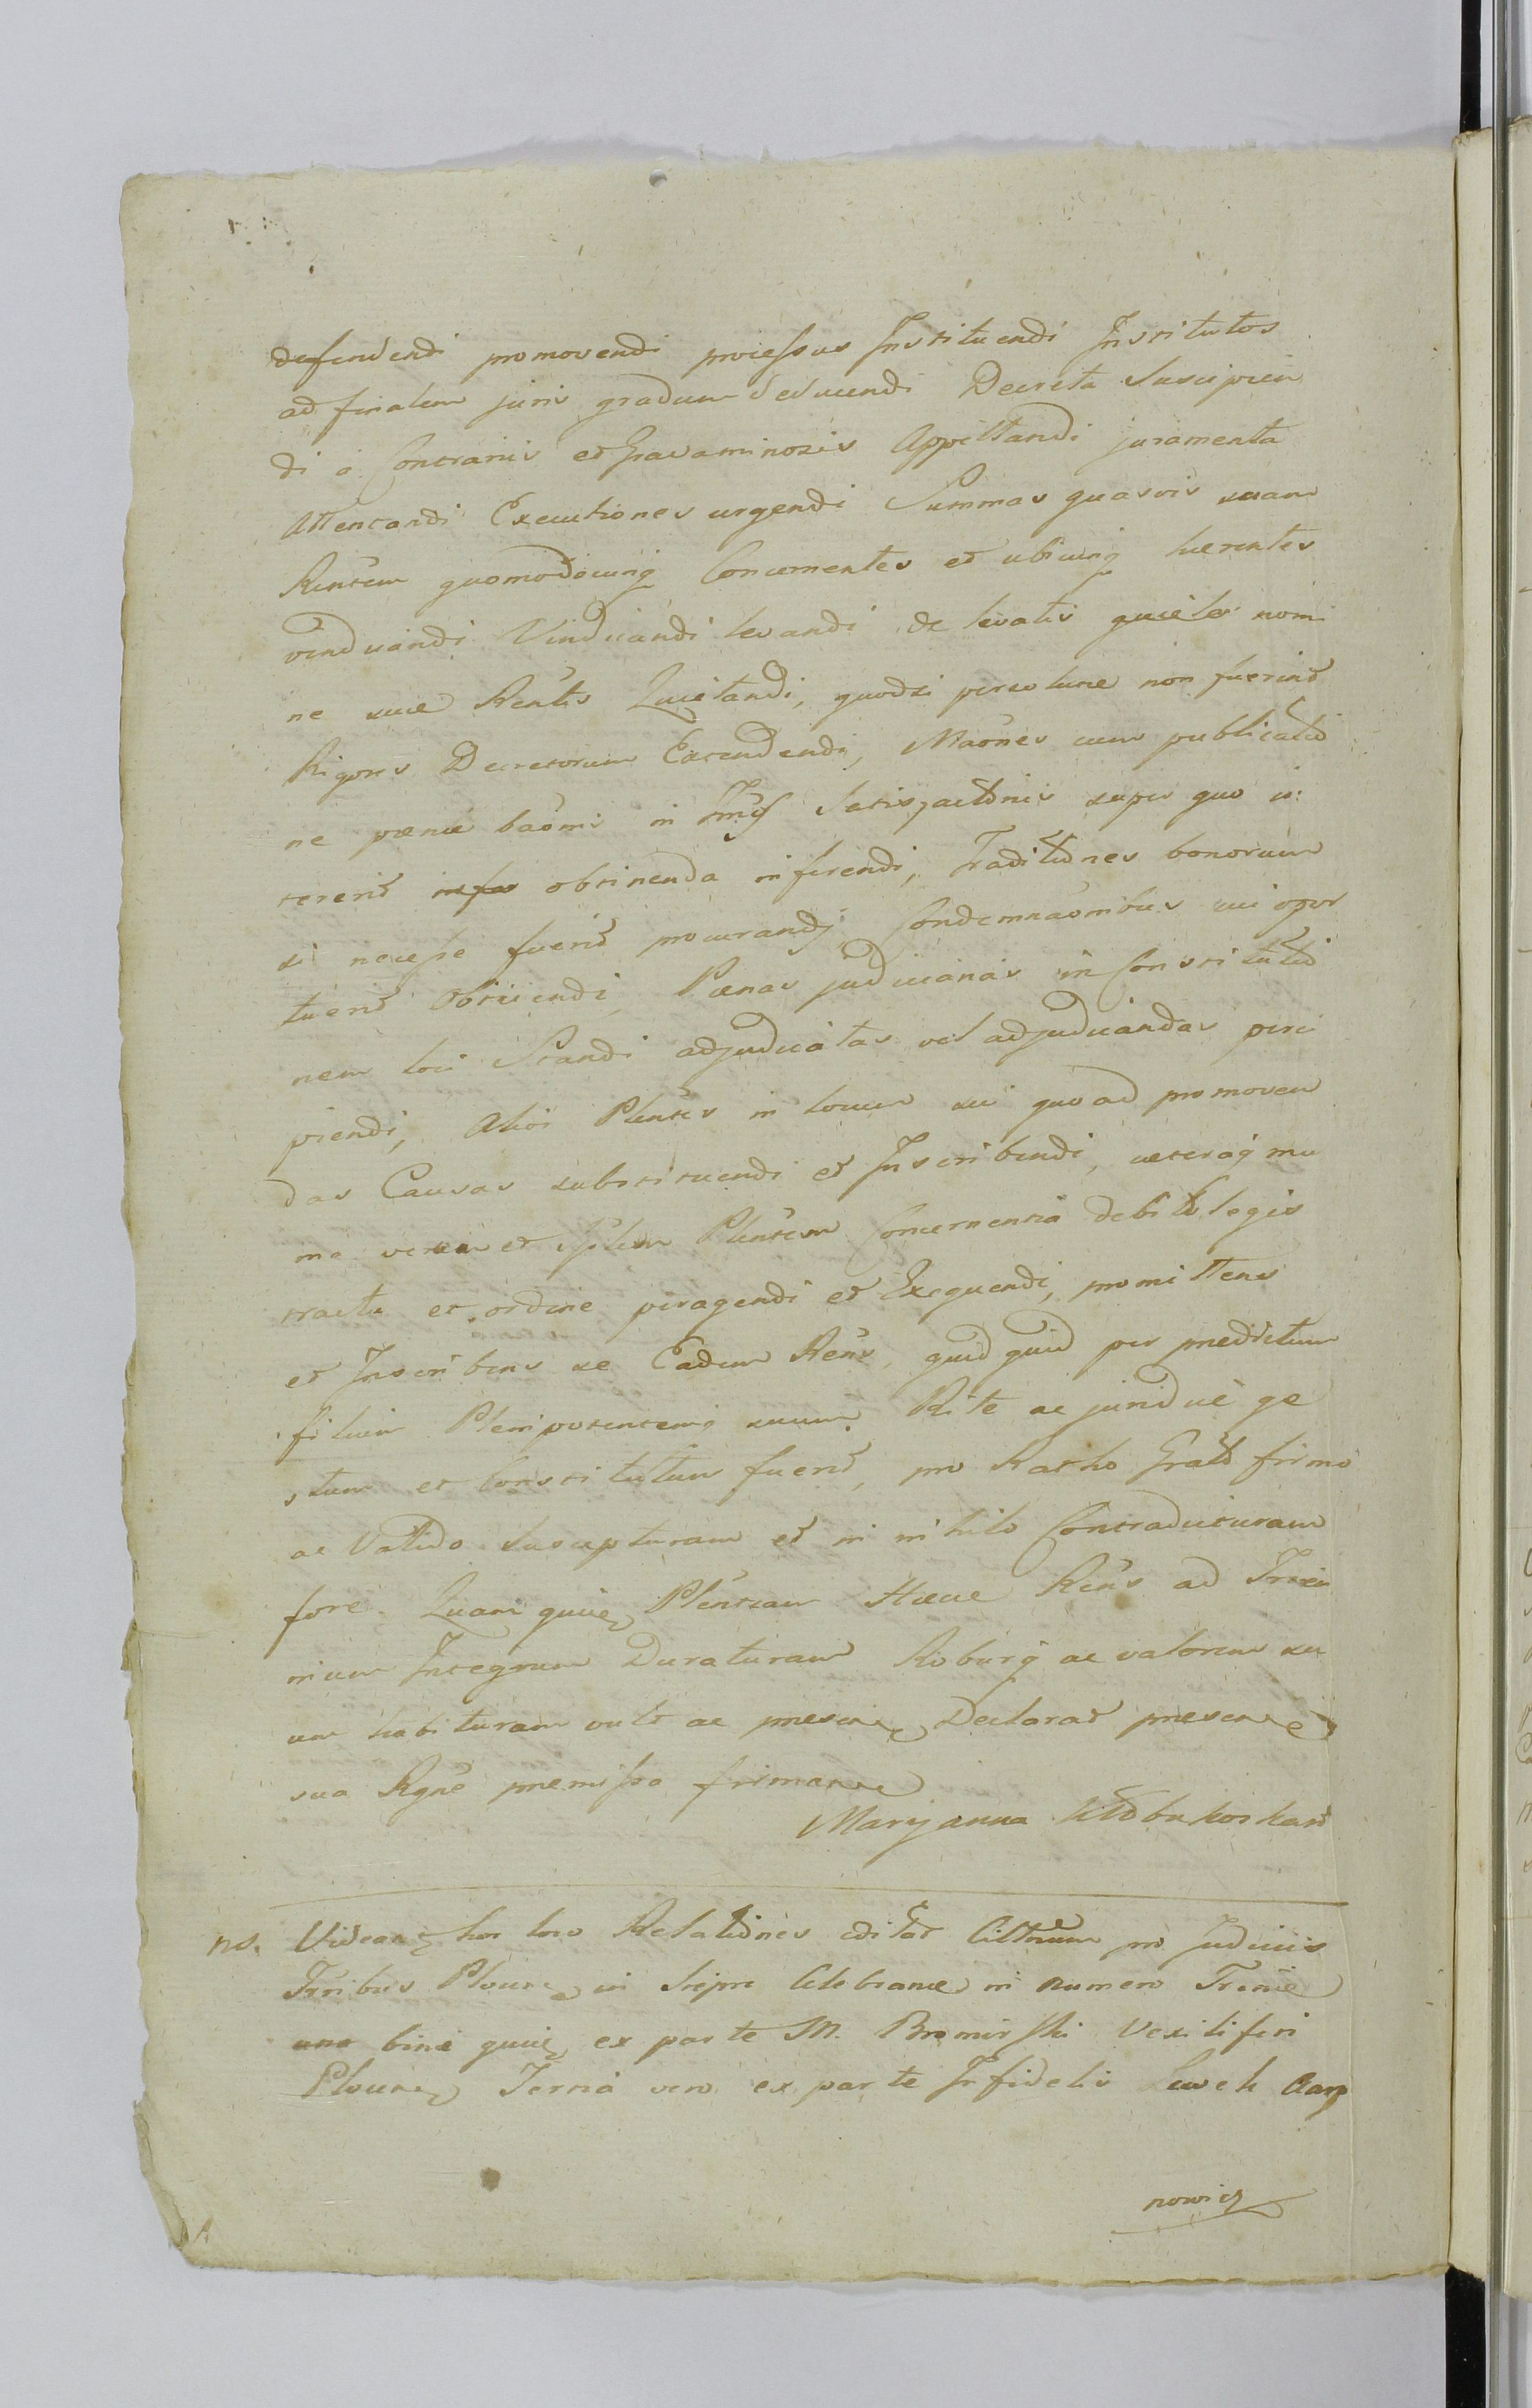 defendendi promovendi processus Instituendi Institutos
ad finalem juris gradum deducendi Decreta Suscipien
di a Contrariis et Gravaminosis Appellandi juramenta
attentandi Executiones urgendi Summas quasvis suam
Rentem quomodocunq Concernentes et ubicunq herentes
vindicandi levandi de levatis nomi
ne sui Rentis Quietandi, quodsi persolute non fuerint
Rigores Decretorum Extendendi, Maones cum publicatio
ne pœnæ baomi in Satisfactionis super quo in
tererit obtinenda inferendi, Traditiones bonorum
si necesse fuerit procurandi, Condemnaonibus cui opor
tuerit Obiiciendi, Pœnas judicianas in Constitutio
nem loci Standi adjudicatas vel adjudicandas perci
piendi, alios Plentes in locum sui quoad promoven
das Causas substituendi et Inscribendi, ceteraq mu
nia veram et Plentem Concernentia debito legis
tractu et ordine peragendi et Exequendi, promittens
et Inscribens se Eadem Rens, quidquid per predictum
filium Plenipotentemq suum Rite ac juridice ge
stum et Constitutum fuerit, pro Ratho Grato firmo
ac Valido suscepturam et in nihilo Contradicturam
fore. Quam quidem Plentiam Hæcce Rens ad Trien
nium Integrum Duraturam Roburq ac valorem su
um habituram vult ac Declarat
sua premissa
Maryanna
ns. hoc loco Relationes pro Judiciis
Ploucen in Celebrane in numero Trine
binæ quidem ex parte M. Bromirski Vexiliferi
Ploucen Tertia vero ex parte Infidelis Lewek Aaro
nowicz